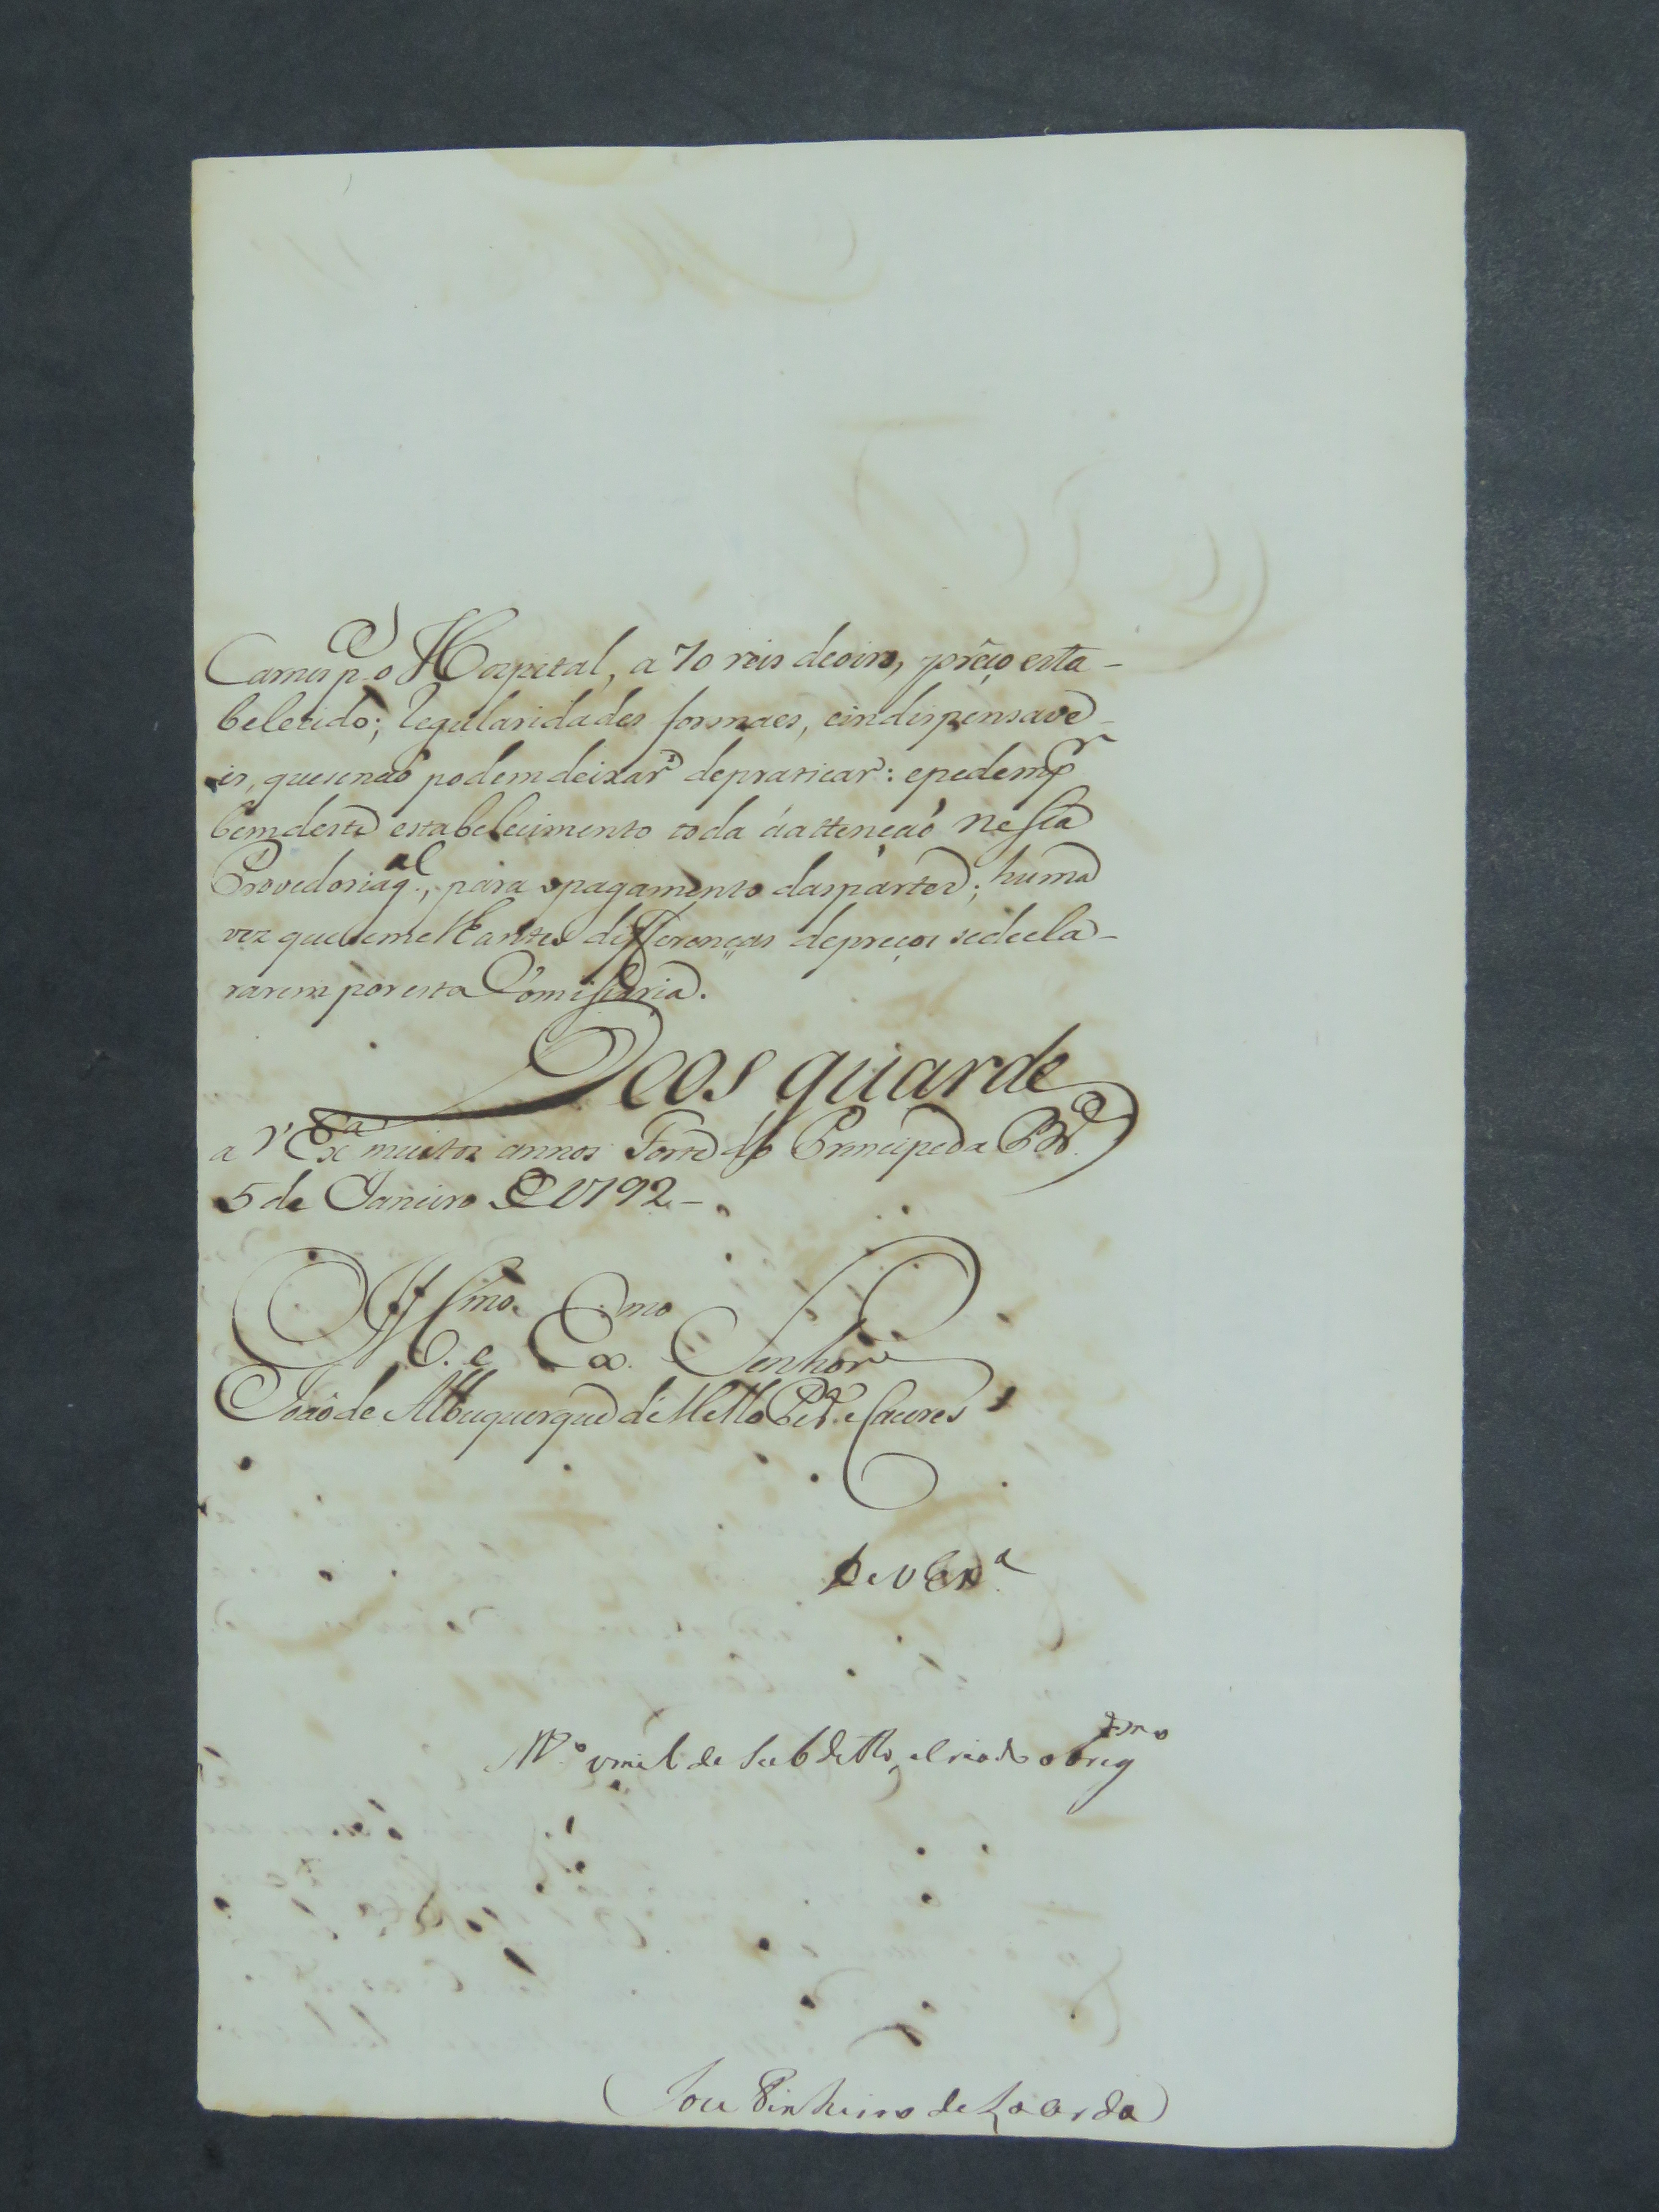 Carnes p.ª o Hospital, a 70 reis de oiro, prêço esta-
belecido; regularidades formaes, e indispensave-
is, que se naó podem deixar de praticar: e pedem
bem deste estabelecimento toda á attençaó nessa
Provedoria g.al, para o pagamento das partes; huma
vez que semelhantes differenças de preços se decla-
rarem por esta Comissaria.
Deos guarde
a V Ex.ª muitos annos Forte do Principe da B.ª
5 de Janeiro de 1792-
Ill.mo e Ex.mo Senhor
Joaó de Albuquerque de Mello Per.ª e Caceres
De V Ex.ª
M.º umilde Subdetto, e Criado obrig.mo
Joze Pinheiro de Lacerda